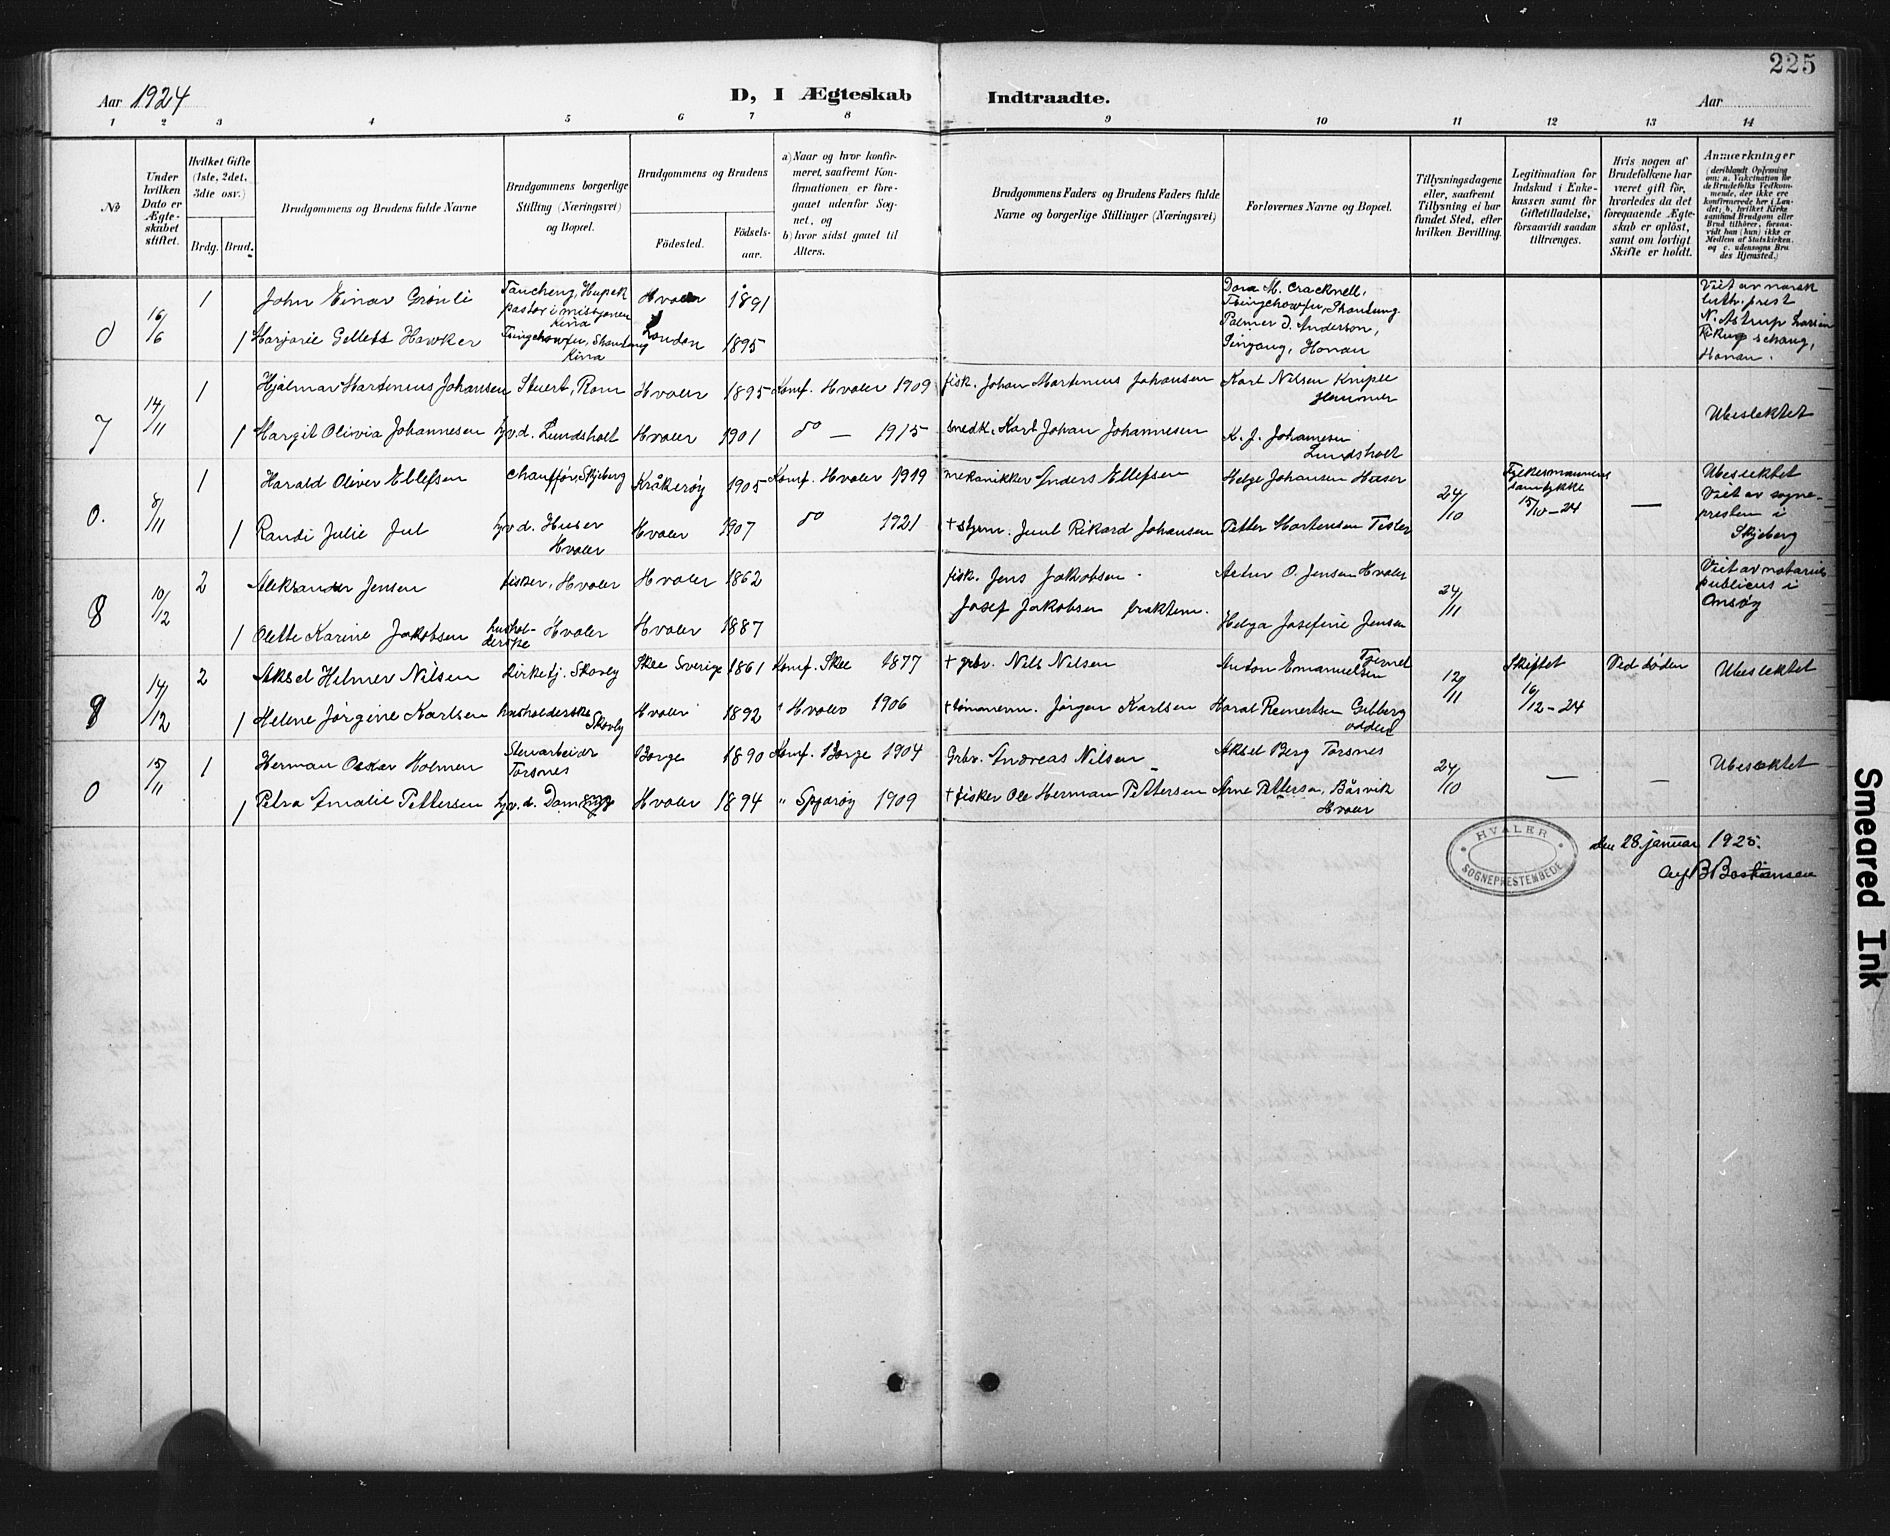 225
Aar 1924
D, I Ægteskab Indtraadte.
Aar
1 2 3 4 5 6 7 8 9 10 11 12 13 14
No
Under hvilken Dato er Ægteskabet stiftet.
Hvilket Gifte (1ste, 2det, 3die osv.)
Brdg. Brud.
Brudgommens og Brudens fulde Navne
Brudgommens borgerlige Stilling (Næringsvei) og Bopæl.
Brudgommens og Brudens
Födested.
Födselsaar.
a) Naar og hvor konfirmeret, saafremt Konfirmationen er foregaaet udenfor Sognet, og
b) hvor sidst gaaet til Alters.
Brudgommens Faders og Brudens Faders fulde Navne og borgerlige Stillinger (Næringsvei)
Forlovernes Navne og Bopæl.
Tillysningsdagene eller, saafremt Tillysning ei har fundet Sted, efter hvilken Bevilling.
Legitimation for Indskud i Enkekassen samt for Giftetilladelse, forsaavidt saadan tiltrænges.
Hvis nogen af Brudefolkene har været gift för, hvorledes da det foregaaende Ægteskab er oplöst, samt om lovligt Skifte er holdt.
Anmærkninger (deriblandt Oplysning om: a. Vakcination for de Brudefolks Vedkommende, der ikke ere konfirmerede her i Landet; b. hvilket Kirkesamfund Brudgom eller Brud tilhører, forsaavidt han (hun) ikke er Medlem af Statskirken, og c. udensogns Brudes Hjemsted.)
0 16/6 1 John Einar Grönli Taucheng, Hupek pastor i misjonen Kina Hvaler 1891
Dora M. Cracknell, Tsingchowfu, Shantung. Viet av norsk luth. prest
1 Marjorie Gillett Hawker Tsingchowfu, Shantung Kina London 1895
Palmer I. Anderson, Sinyang, Honan N. Astrup Larsen Kikungschang, Honan.
7 14/11 1 Hjalmar Martenius Johansen Stuert, Rom Hvaler 1895 Konf. Hvaler 1909 fisk. Johan Martenius Johansen Karl Nilsen Kniple Hammer
1 Margit Olivia Johannesen hjv.d. Lundsholt Hvaler 1901 do — 1915 snedk. Karl Johan Johannesen K. J. Johannesen Lundsholt Ubeslektet
0. 8/11 1 Harald Oliver Ellefsen Chauffør, Skjeberg Kråkerøy 1905 Konf. Hvaler 1919 mekanikker Anders Ellefsen Helge Johansen Huser 24/10 Fylkesmannens samtykke 15/10-24 — Ubeslektet Viet av sognepresten i Skjeberg
1 Randi Julie Jul hjv.d. Huser Hvaler Hvaler 1907 do 1921 + styrm. Juul Rikard Johansen Petter Martensen Tisler
8 10/12 2 Aleksander Jensen fisker, Hvaler Hvaler 1862 fisk. Jens Jakobsen. Artur O. Jensen Hvaler 24/11 Viet av notarius publicus i Onsøy
1 Olette Karine Jakobsen husholderske Hvaler Hvaler 1887 Josef Jakobsen Helga Josefine Jensen
9 14/12 2 Aksel Hilmer Nilsen Kirketj. Skovby Skee Sverige 1861 Konf. Skee 1877 + grbr. Nils Nilsen Anton Emanuelsen 12/11 Skiftet 16/12-24 Ved döden Ubeslektet
1 Helene Jørgine Karlsen husholderske Skovby Hvaler 1892 " Hvaler 1906 + tömmerm. Jörgen Karlsen Haral Reinertsen
0 15/11 1 Herman Oskar Holmen Stenarbeider Torsnes Borge 1890 Konf. Borge 1904 Grbr. Andreas Nilsen Aksel Berg Torsnes 24/10 — — Ubeslektet
1 Petra Amalie Pettersen hjv.d. Hvaler 1894 " Spjærøy 1909 + fisker Ole Herman Pettersen Arne Petterse, Båsvik Hvaler
HVALER SOGNEPRESTEMBEDE
den 28 januar 1925.
Alf B Bastiansen
Smeared Ink